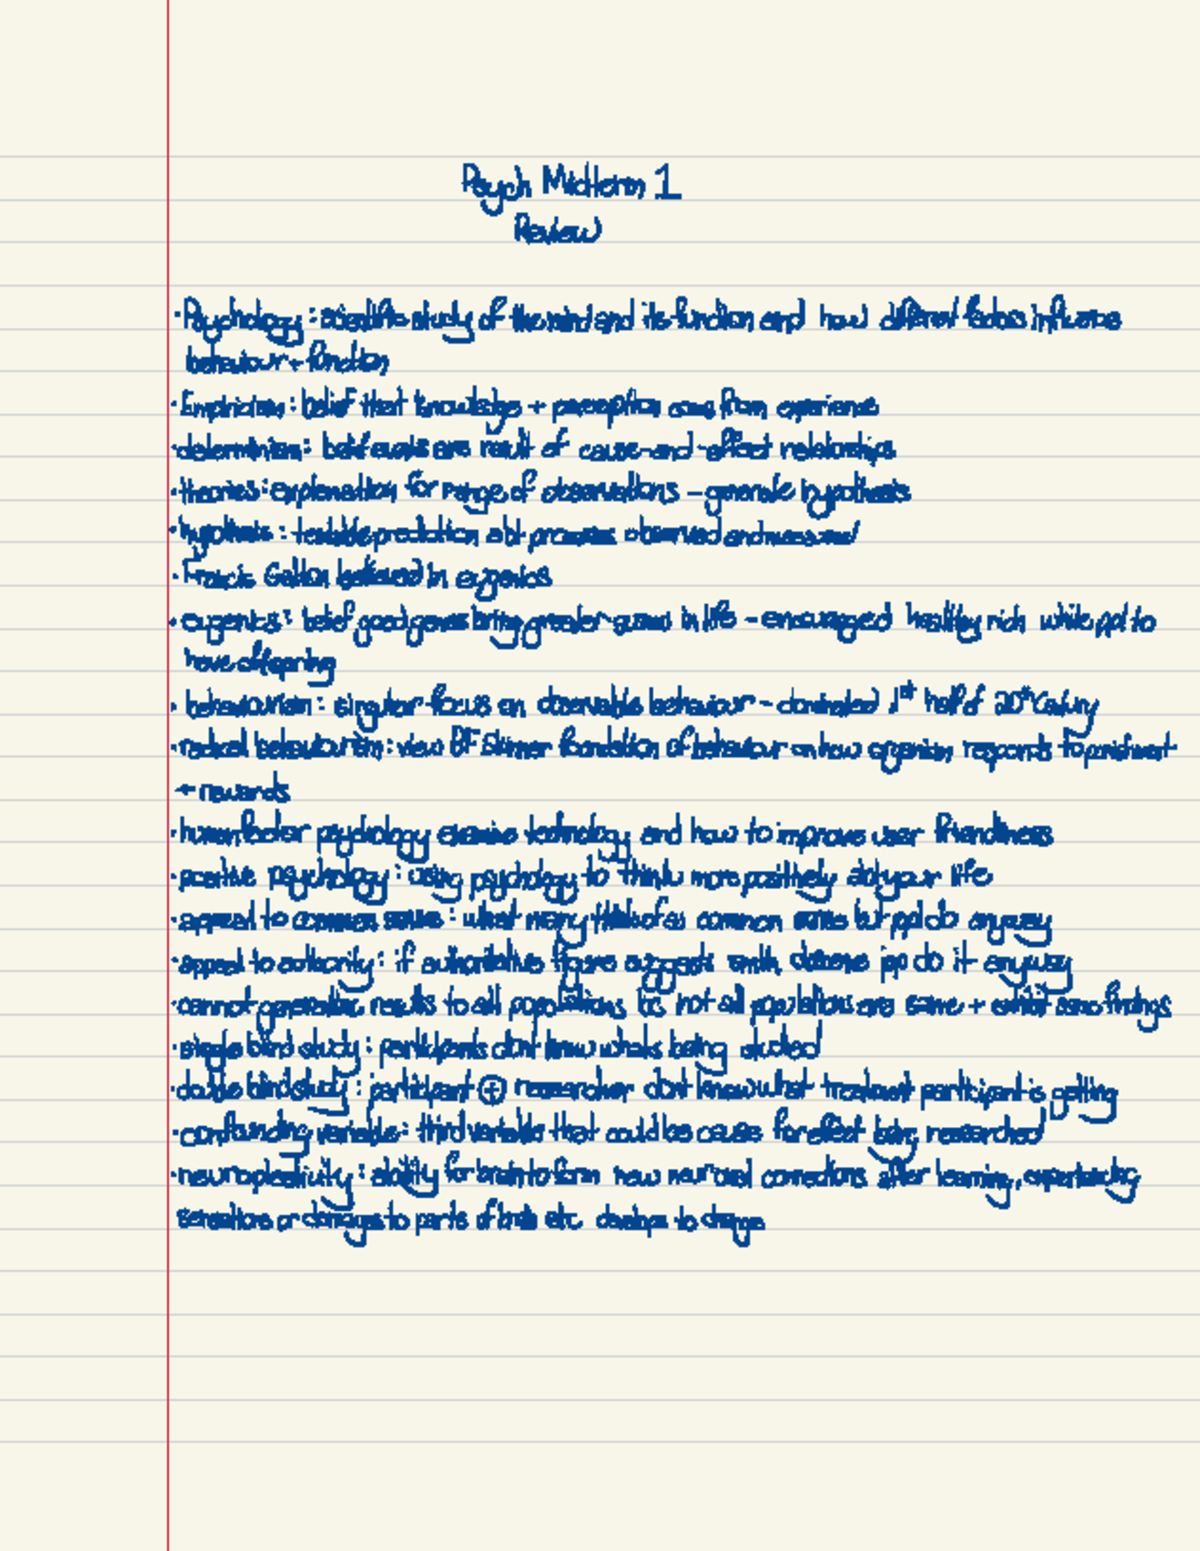 Psych Midterm 1
Review
· Psychology : scientific study of the mind and its function and how different factors influence
behaviour + function
· Empiricism : belief that knowledge + perception come from experience
· determinism : belief events are result of cause-and-effect relationships
· theories : explanation for range of observations - generate hypothesis
· hypothesis : testable prediction abt processes observed and measured
· Francis Galton believed in eugenics
· eugenics : belief good genes bring greater success in life - encouraged healthy rich white ppl to
have offspring
· behaviourism : singular focus on observable behaviour - dominated 1st half of 20th Century
· radical behaviourism : view BF Skinner foundation of behaviour on how organism responds to punishment
+ rewards
· human factor psychology examine technology and how to improve user friendliness
· positive psychology : using psychology to think more positively abt your life
· appeal to common sense : what many think of as common sense but ppl do anyway
· appeal to authority : if authoritative figure suggests smth, ppl do it anyway
· cannot generalize results to all populations bc not all populations are same + exhibit same findings
· single blind study : participants don't know what's being studied
· double blind study : participant + researcher don't know what treatment participant is getting
· confounding variable : third variable that could be cause for effect being researched
· neuroplasticity : ability for brain to form new neuronal connections after learning, experiencing
sensations or damage to parts of brain etc develops to change